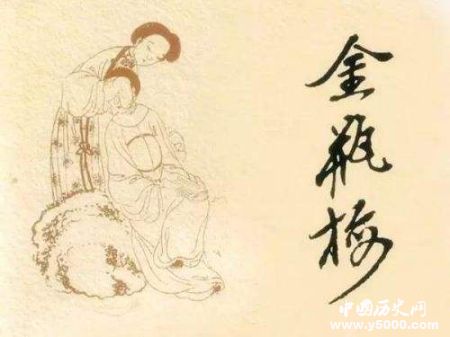 金瓶梅
中国历史网
www.y5000.com